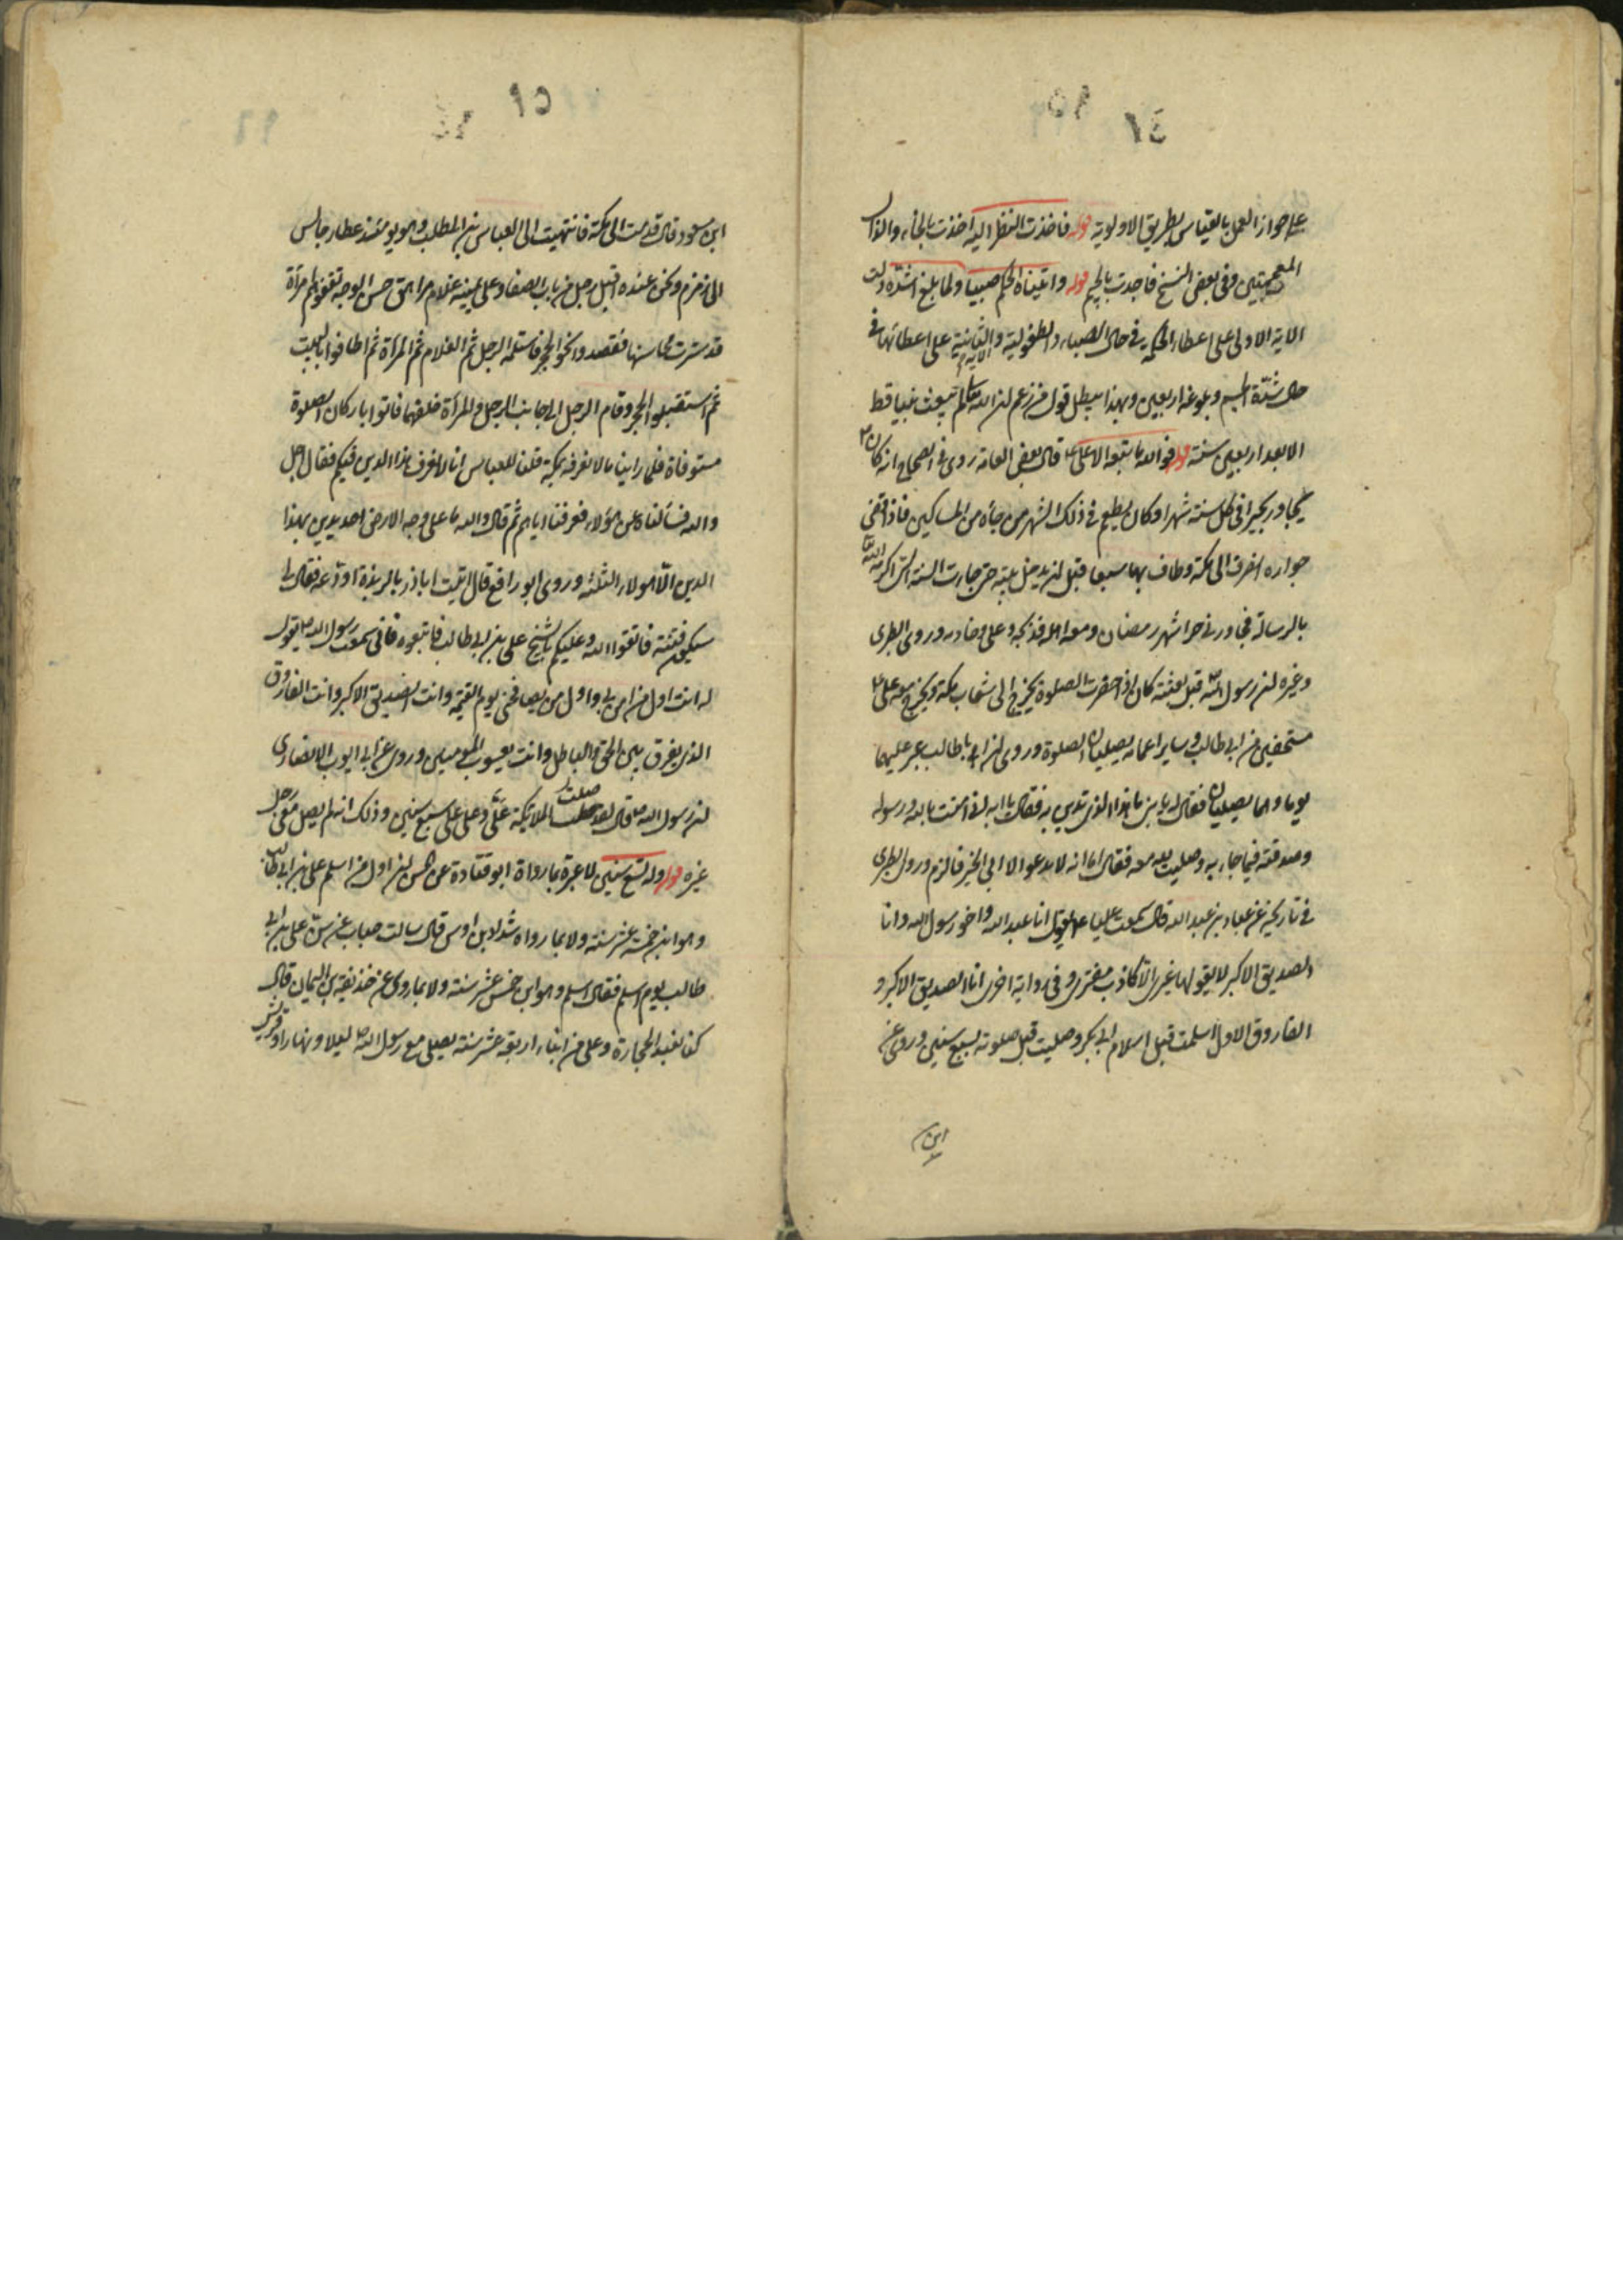 على جواز العمل بالقياس بطريق الاولوية قوله فاخذت النظر اليه اخذت بالخاء والذال
المعجمتين وفى بعض النسخ فاجدت بالجيم قوله واتيناه الحكم صبيا ولما بلغ اشده دلت
الاية الاولى على اعطاء الحكمة فى حال الصباء والطفولية والثانية الاية على اعطائها فى
حال شدة الجسم وبلوغه اربعين وبهذا يبطل قول من زعم ان الله تعالى لم يبعث نبيا قط
الا بعد اربعين سنة قوله فوالله ما تبعه الا على قال بعض العامة روى فى الصحاح انه كان
يجاور بحرا فى كل سنة شهرا وكان يطعم فى ذلك الشهر من جاءه من المساكين فاذا قضى
جواره انصرف الى مكة وطاف بها سبعا قبل ان يدخل بيته حتى جاءت السنة التى اكرمه الله
بالرسالة فجاور فى حرا شهر رمضان ومعه اهله خديجة وعلى وخادم وروى الطبرى
وغيره ان رسول الله ص قبل بعثته كان اذا حضرت الصلوة يخرج الى شعاب مكة ويخرج معه على ع
مستخفين من ابى طالب وساير اعمامه يصليان الصلوة وروى ان ابا طالب عبر عليهما
يوما وهما يصليان فقال له يا بنى ما هذا الذى تدين به فقال يا ابه انى امنت بالله ورسوله
وصدقته فيما جاء به وصليت لله معه فقال اما انه لا يدعو الا الى الخير فالزم وروى الطبرى
فى تاريخه عن عباد بن عبد الله قال سمعت عليا ع يقول انا عبد الله واخو رسول الله وانا
الصديق الاكبر لا يقولها غيرى الا كاذب مفترى وفى رواية اخرى انا الصديق الاكبر و
الفاروق الاول اسلمت قبل اسلام ابى بكر وصليت قبل صلوته بسبع سنين وروى عن
ابن
ابن مسعود قال قدمت الى مكة فانتهيت الى العباس بن المطلب وهو يومئذ عطار جالس
الى زمزم ونحن عنده اقبل رجل من باب الصفا وعلى يمينه غلام مراهق حسن الوجه تقفوهم امرأة
قد سترت محاسنها فقصدوا نحو الحجر فاستلمه الرجل ثم الغلام ثم المرأة ثم اطافوا بالبيت
ثم استقبلوا الحجر وقام الرجل الى جانب الرجل والمرأة خلفهما فاتوا باركان الصلوة
مستوفاة فلما راينا ما لا نعرفه بمكة قلنا للعباس انا لا نعرف هذا الدين فيكم فقال اجل
والله فسألناه عن هؤلاء فعرفنا اياهم ثم قال والله ما على وجه الارض احد يدين بهذا
الدين الا هولاء الثلثة وروى ابو رافع قال اتيت اباذر بالربذة اودعه فقال لى
سيكون فتنة فاتقوا الله وعليكم بالشيخ على بن ابى طالب فاتبعوه فانى سمعت رسول الله ص يقول
له انت اول من امن بى واول من يصافحنى يوم القيمة وانت الصديق الاكبر وانت الفاروق
الذى يفرق بين الحق والباطل وانت يعسوب المومنين وروى عن ابى ايوب الانصارى
ان رسول الله ص قال لقد صلت الملائكة على وعلى على سبع سنين وذلك انه لم يصل معى رجل
غيره قوله وله تسع سنين لا عبرة بما رواه ابو قتادة عن الحسن ان اول من اسلم على بن ابى طالب
وهو ابن خمسة عشر سنة ولا بما رواه شداد بن اوس قال سالت خباب عن سن على بن ابى
طالب يوم اسلم فقال اسلم وهو ابن خمس عشر سنة ولا بما روى عن حذيفة بن اليمان قال
كنا نعبد الحجارة وعلى من ابناء اربعة عشر سنة يصلى مع رسول الله ص ليلا ونهارا وقريش